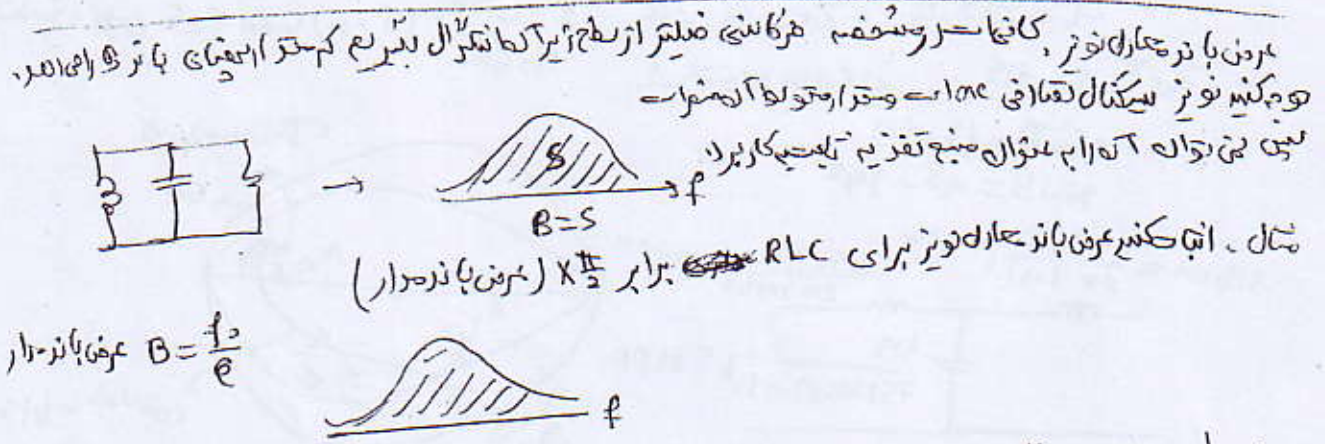 عرض باند معادل نویز، کافیست مشخصه فرکانسی فیلتر از سطح زیر آن انتگرال بگیریم که مقدار پهنای باند B را می‌دهد.
توجه کنید نویز سیگنال تصادفی است و مقدار متوسط آن صفر است
پس نمی‌توان آن را به عنوان منبع تغذیه بکار برد.
→ S f
B=S
مثال ـ اثبات کنید عرض باند معادل نویز برای RLC برابر π/2 × (عرض باند مدار)
عرض باند مدار B = f₀/Q
f